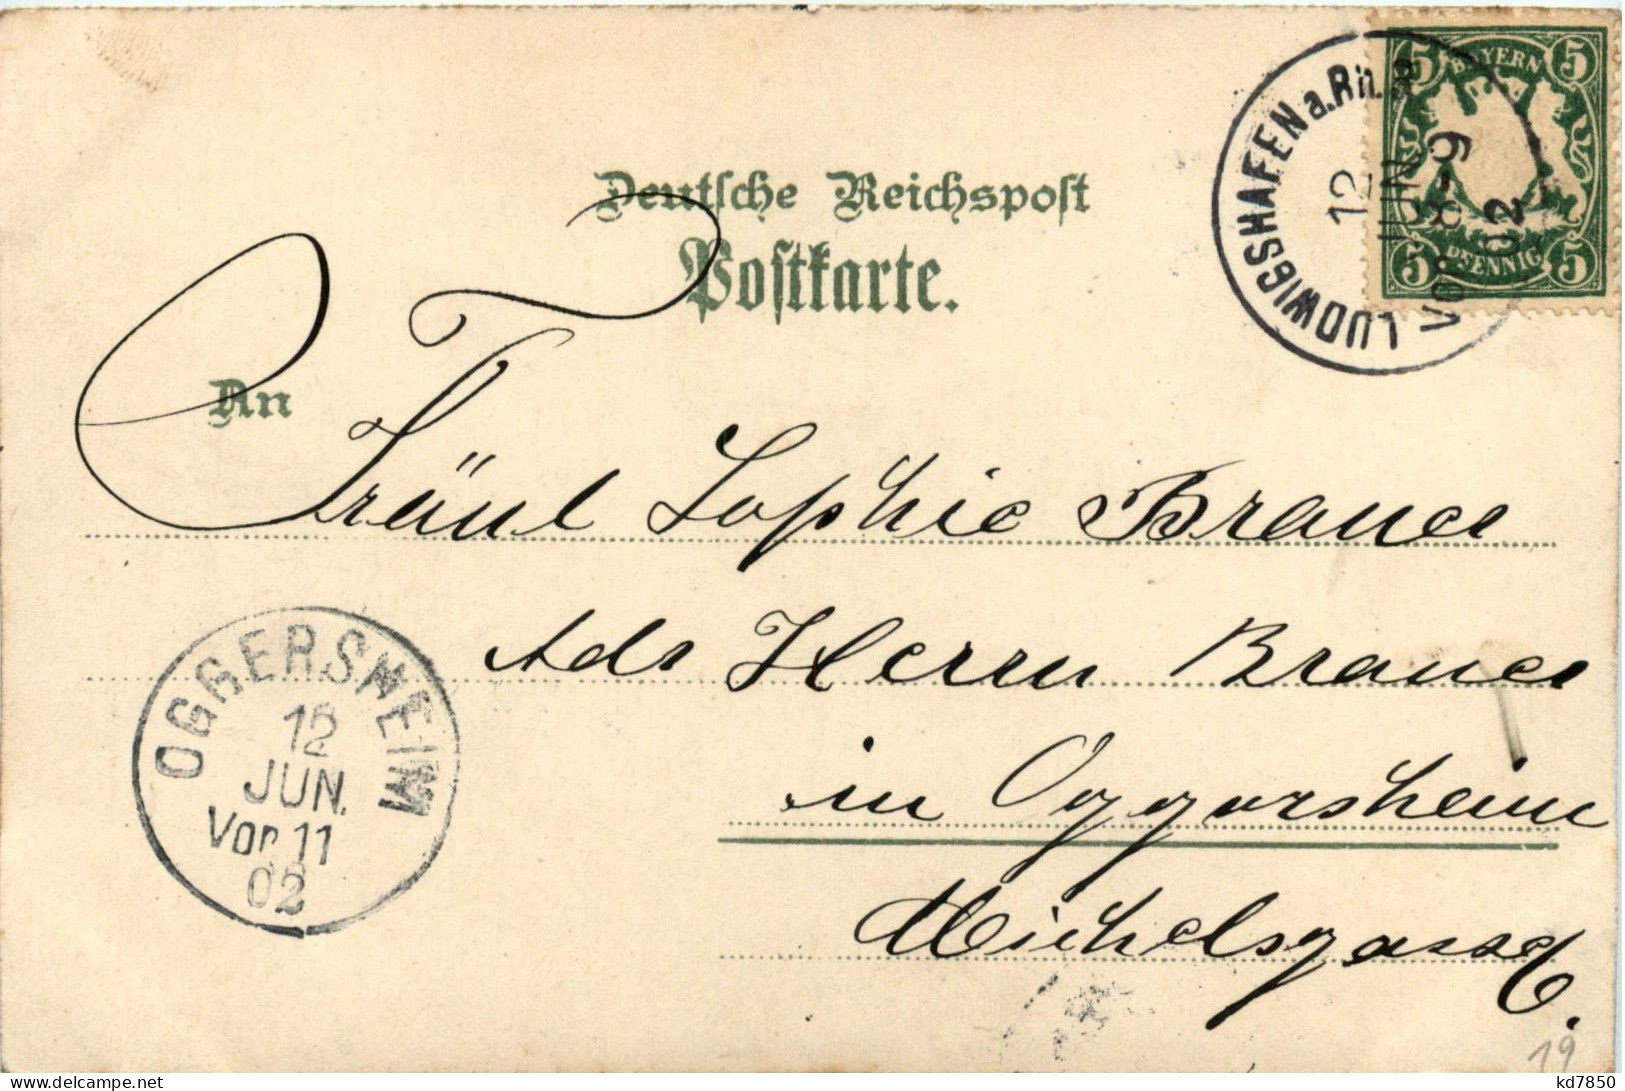 LUDWIGSHAFEN a. Rh.
12
JUN
VOR 8-9
02
5 BAYERN 5
5 PFENNIG 5
Deutsche Reichspost
Postkarte.
An
Fräul Sophie Brauer
Adr Herrn Brauer
in Oggersheim
Michelsgasse 6.
OGGERSHEIM
12
JUN.
Vor 11
02
19
kd7850